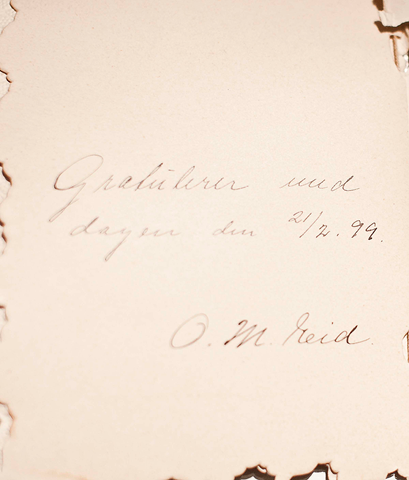 Gratulerer med
dagen den 21/2. 99.
O. M. Eeid.